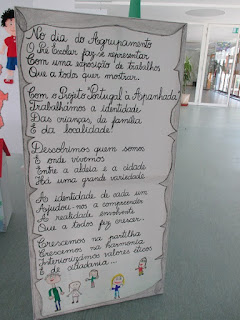 No dia do Agrupamento
O Pré Escolar faz-se representar
Com uma exposição de trabalhos
Que a todos quer mostrar.
Com o Projeto "Portugal à Apanhada"
Trabalhámos a identidade
Das crianças, da família
E da localidade!
Descobrimos quem somos
E onde vivemos
Entre a aldeia e a cidade
Há uma grande variedade
A identidade de cada um
Ajudou-nos a compreender
A realidade envolvente
Que a todos faz crescer...
Crescemos na partilha
Crescemos na harmonia
Interiorizámos valores éticos
E de cidadania...